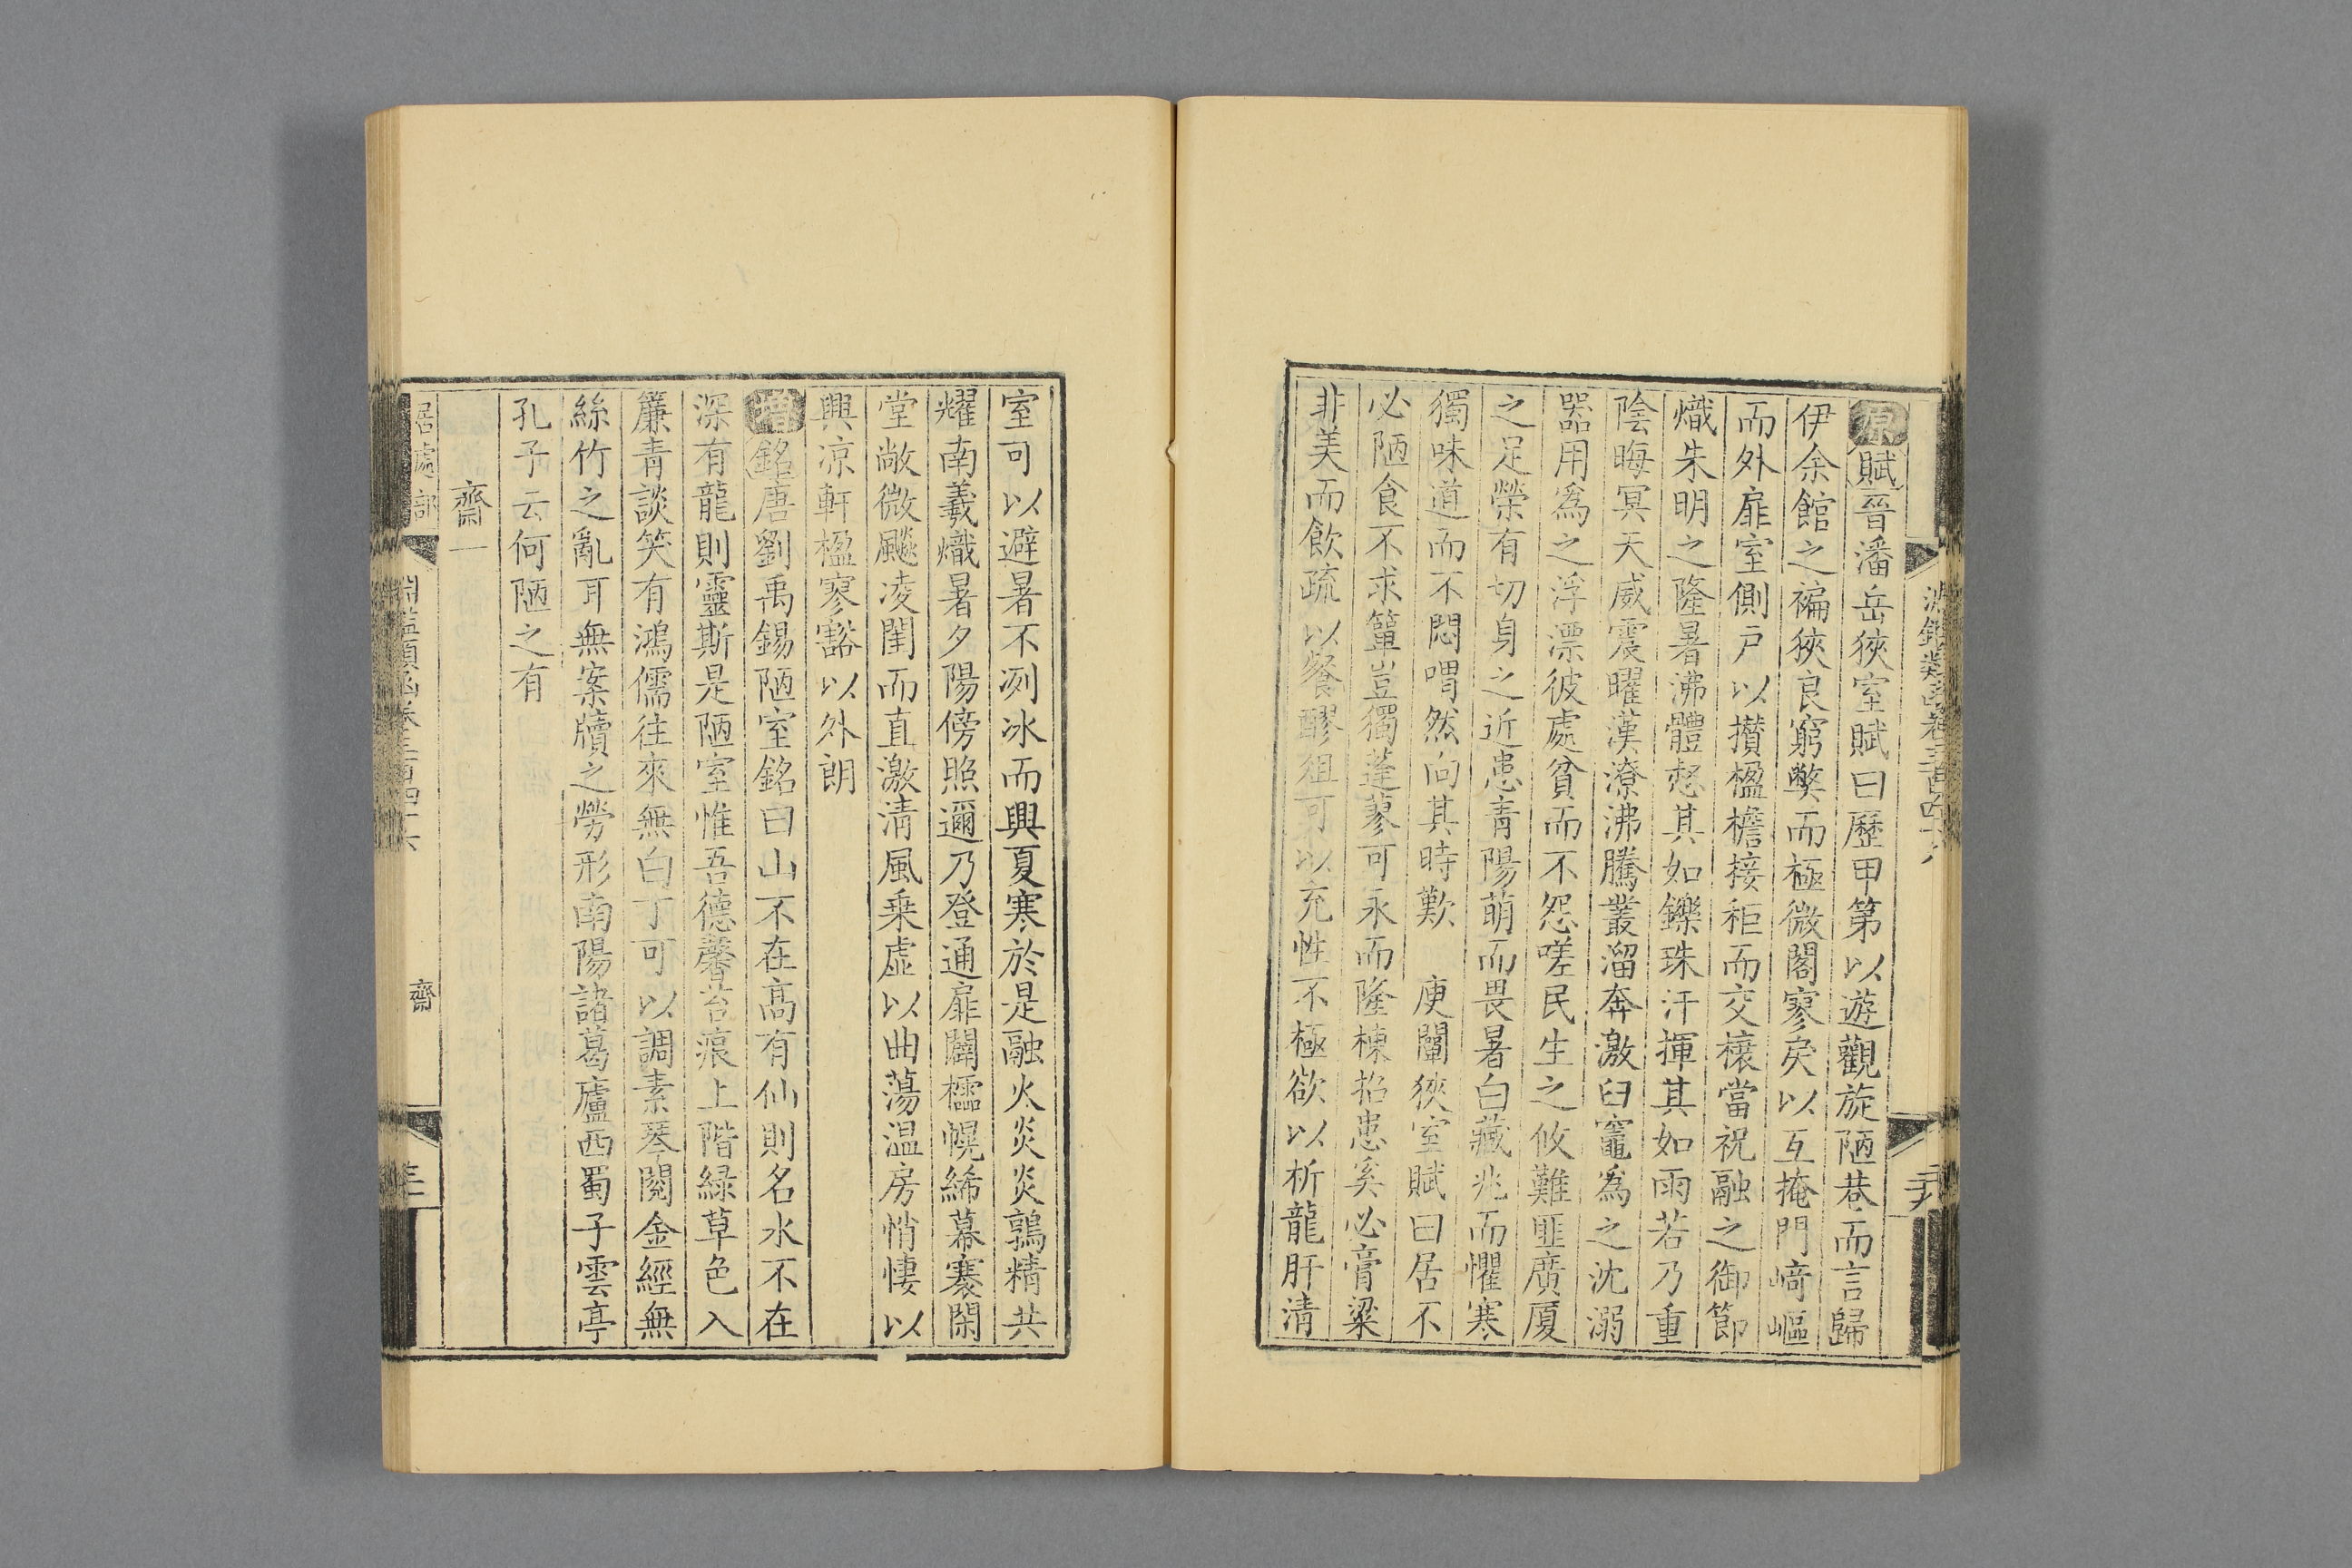 淵鑑類函卷三百四十六
原賦晉潘岳狹室賦曰歷甲第以遊觀旋陋巷而言歸
伊余館之褊狹良窮弊而極微閣寥戾以互掩門崎嶇
而外扉室側戶以攢楹檐接秬而交榱當祝融之御節
熾朱明之隆暑沸體怒其如鑠珠汗揮其如雨若乃重
陰晦冥天威震曜漢潦沸騰叢溜奔激臼竈為之沈溺
器用為之浮漂彼處貧而不怨嗟民生之攸難匪廣厦
之足榮有切身之近患青陽萌而畏暑白藏兆而懼寒
獨味道而不悶喟然向其時歎 庾闡狹室賦曰居不
必陋食不求簞豈獨蓬蓼可永而隆棟招患奚必膏粱
非美而飲疏以餐醪俎可以充性不極欲以析龍肝清
室可以避暑不洌冰而興夏寒於是融火炎炎鶉精共
耀南羲熾暑夕陽傍照邇乃登通扉闢櫺幌絺幕褰閑
堂敞微飈凌閨而直激清風乗虛以曲蕩温房悄悽以
興凉軒楹寥豁以外朗
增銘唐劉禹錫陋室銘曰山不在高有仙則名水不在
深有龍則靈斯是陋室惟吾德馨苔痕上階綠草色入
簾青談笑有鴻儒往來無白丁可以調素琴閱金經無
絲竹之亂耳無案牘之勞形南陽諸葛廬西蜀子雲亭
孔子云何陋之有
齋一
居處部 淵鑑類函卷三百四十六 齋